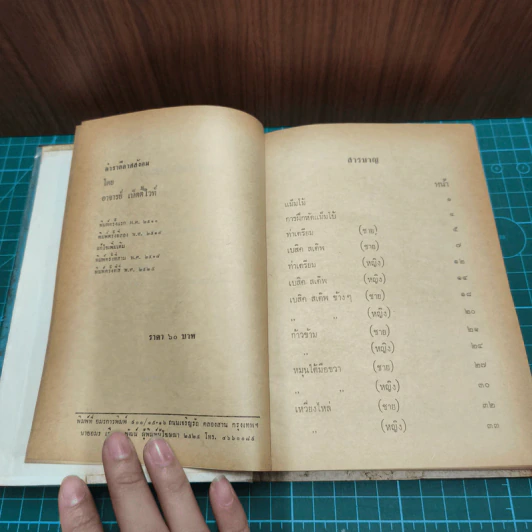 ตำราลีลาศสังคม
โดย
อาจารย์
พิมพ์ครั้งแรก พ.ศ.
พิมพ์ครั้งที่สอง พ.ศ.
แก้ไขเพิ่มเติม
พิมพ์ครั้งที่สาม พ.ศ.
พิมพ์ครั้งที่สี่ พ.ศ.
ราคา ๖๐ บาท
พิมพ์ที่ ถนนเจริญรัถ คลองสาน กรุงเทพฯ
ผู้พิมพ์ผู้โฆษณา ๒๕๒๕ โทร.
สารบาญ
หน้า
แม็มโบ้ ๑
การฝึกหัดแม็มโบ้
ท่าเตรียม (ชาย) ๕
เบสิค สเต็พ (ชาย) ๗
ท่าเตรียม (หญิง) ๑๒
เบสิค สเต็พ (หญิง) ๑๔
เบสิค สเต็พ ข้างๆ (ชาย) ๑๘
,, ,, (หญิง) ๒๐
ก้าวข้าม (ชาย) ๒๑
,, (หญิง) ๒๔
หมุนใต้มือขวา (ชาย) ๒๗
,, ,, (หญิง) ๓๐
เหวี่ยงไหล่ (ชาย) ๓๒
,, (หญิง) ๓๓